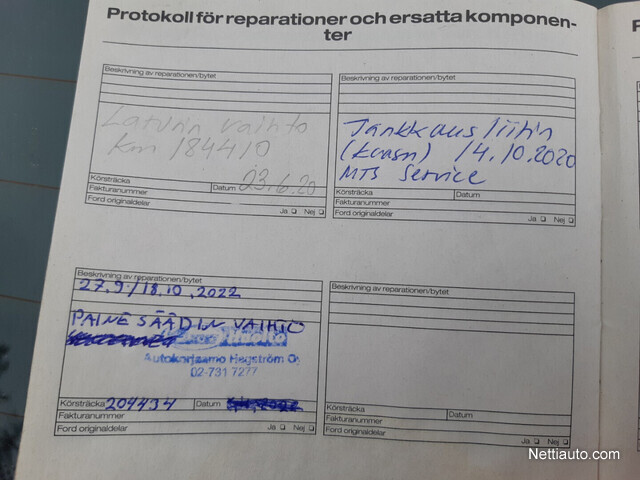 Protokoll för reparationer och ersatta komponen-
ter
Beskrivning av reparationen/bytet
Laturin vaihto
km 184410
Körsträcka
Fakturanummer Datum 23.6.20
Ford originaldelar Ja Nej
Beskrivning av reparationen/bytet
Jänkkaus liitin
14.10.2020
MTS Service
Körsträcka Datum
Fakturanummer
Ford originaldelar Ja Nej
Beskrivning av reparationen/bytet
27.9/18.10.2022
PAINESÄÄDIN VAIHTO
Autokorjaamo Hegström Oy
02-731 7277
Körsträcka 204434 Datum
Fakturanummer
Ford originaldelar Ja Nej
Beskrivning av reparationen/bytet
Körsträcka Datum
Fakturanummer
Ford originaldelar Ja Nej
Nettiauto.com